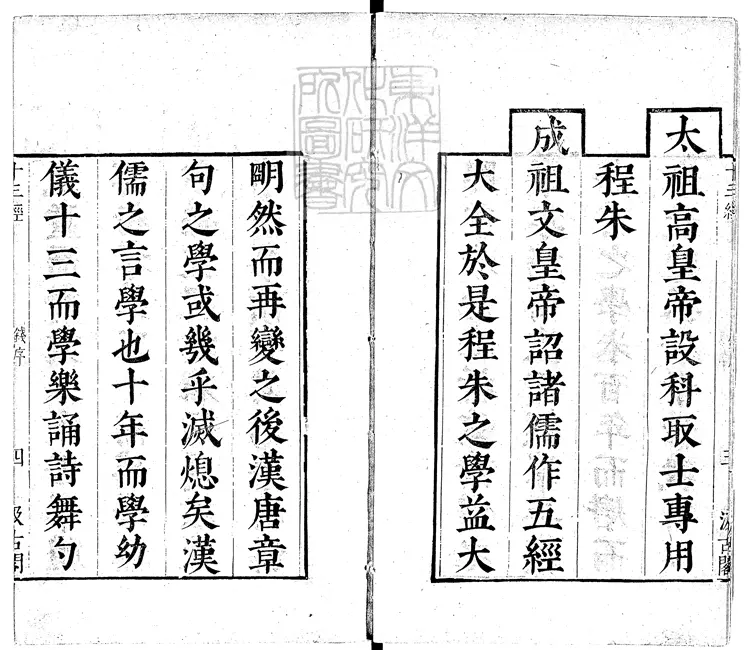 太祖高皇帝設科取士專用
程朱
成祖文皇帝詔諸儒作五經
大全於是程朱之學益大
眀然而再變之後漢唐章
句之學或幾乎滅熄矣漢
儒之言學也十年而學幼
儀十三而學樂誦詩舞勺
十三經 錢序 四 汲古閣
東洋文化研究所圖書